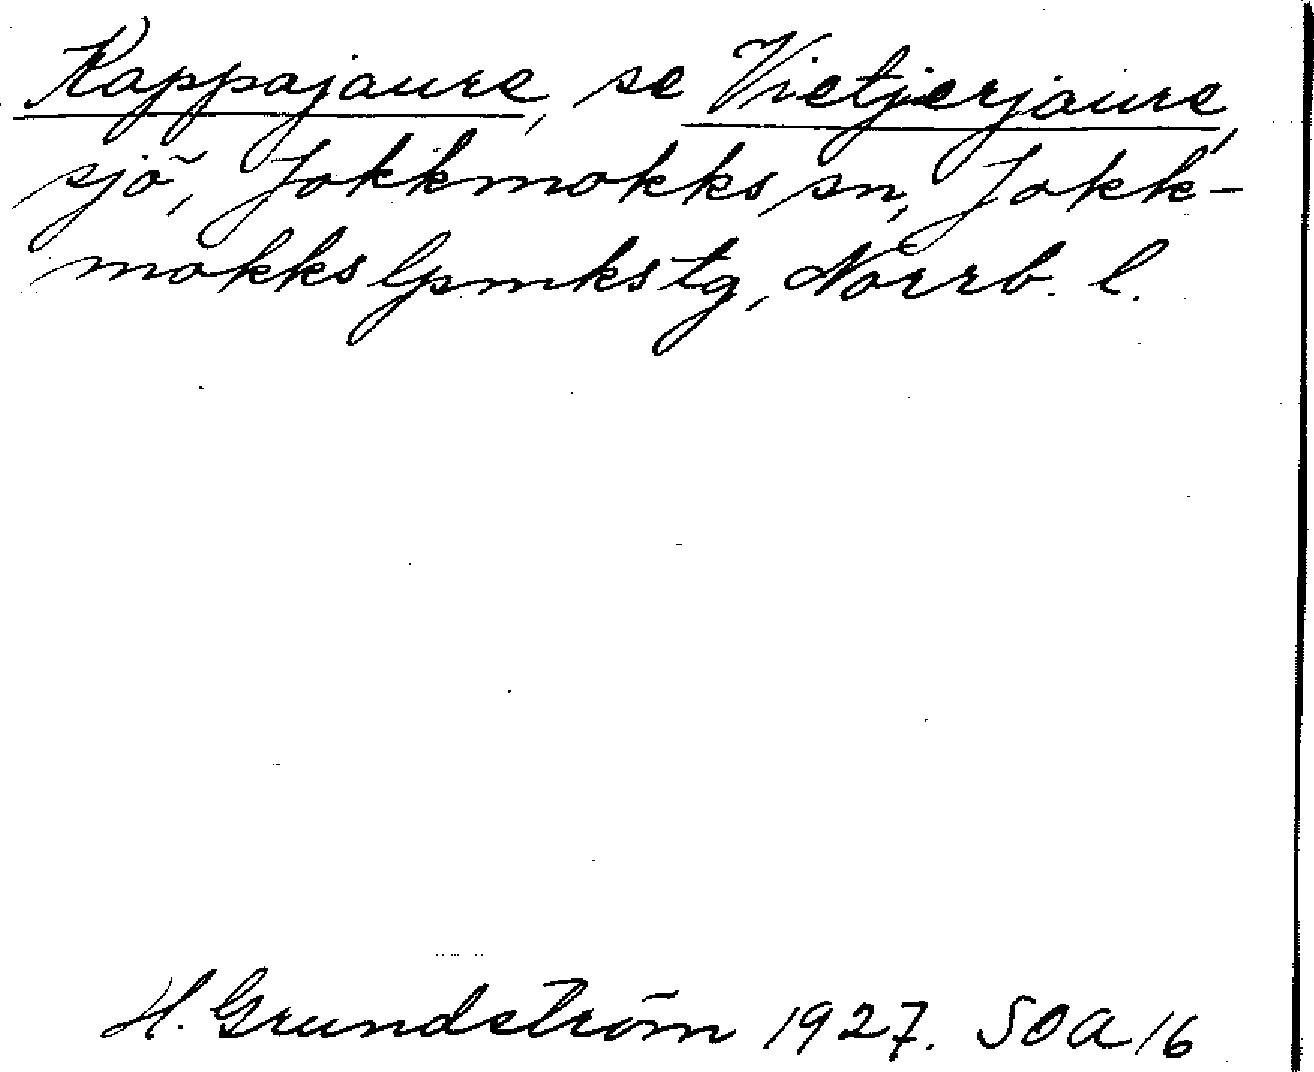 Kappajaure, se Vietjerjaure,
sjö, Jokkmokks sn, Jokk-
mokks lpmkstg, Norrb. l.
H. Grundström 1927. SOA 16